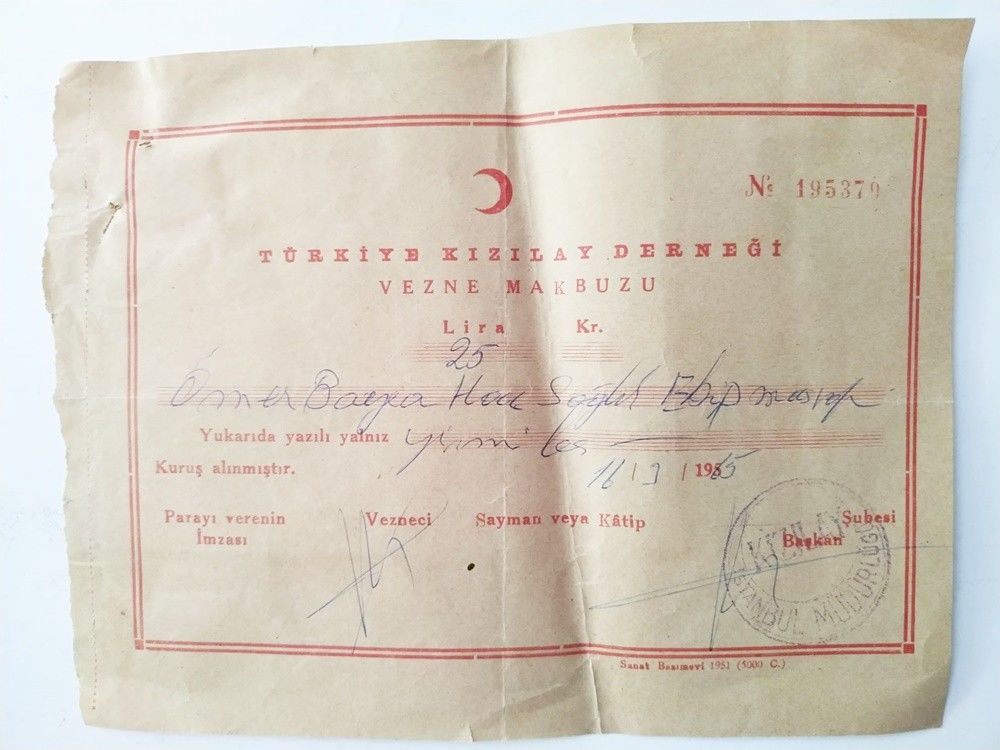 № 195379
TÜRKİYE KIZILAY DERNEĞİ
VEZNE MAKBUZU
Lira Kr.
25
Ömer Hac Ekip
Yukarıda yazılı yalnız yirmi beş
Kuruş alınmıştır.
16 / 3 / 1965
Parayı verenin Vezneci Sayman veya Kâtip Şubesi
İmzası Başkan
KIZILAY
İSTANBUL MÜDÜRLÜĞÜ
Sanat Basımevi 1951 (5000 C.)